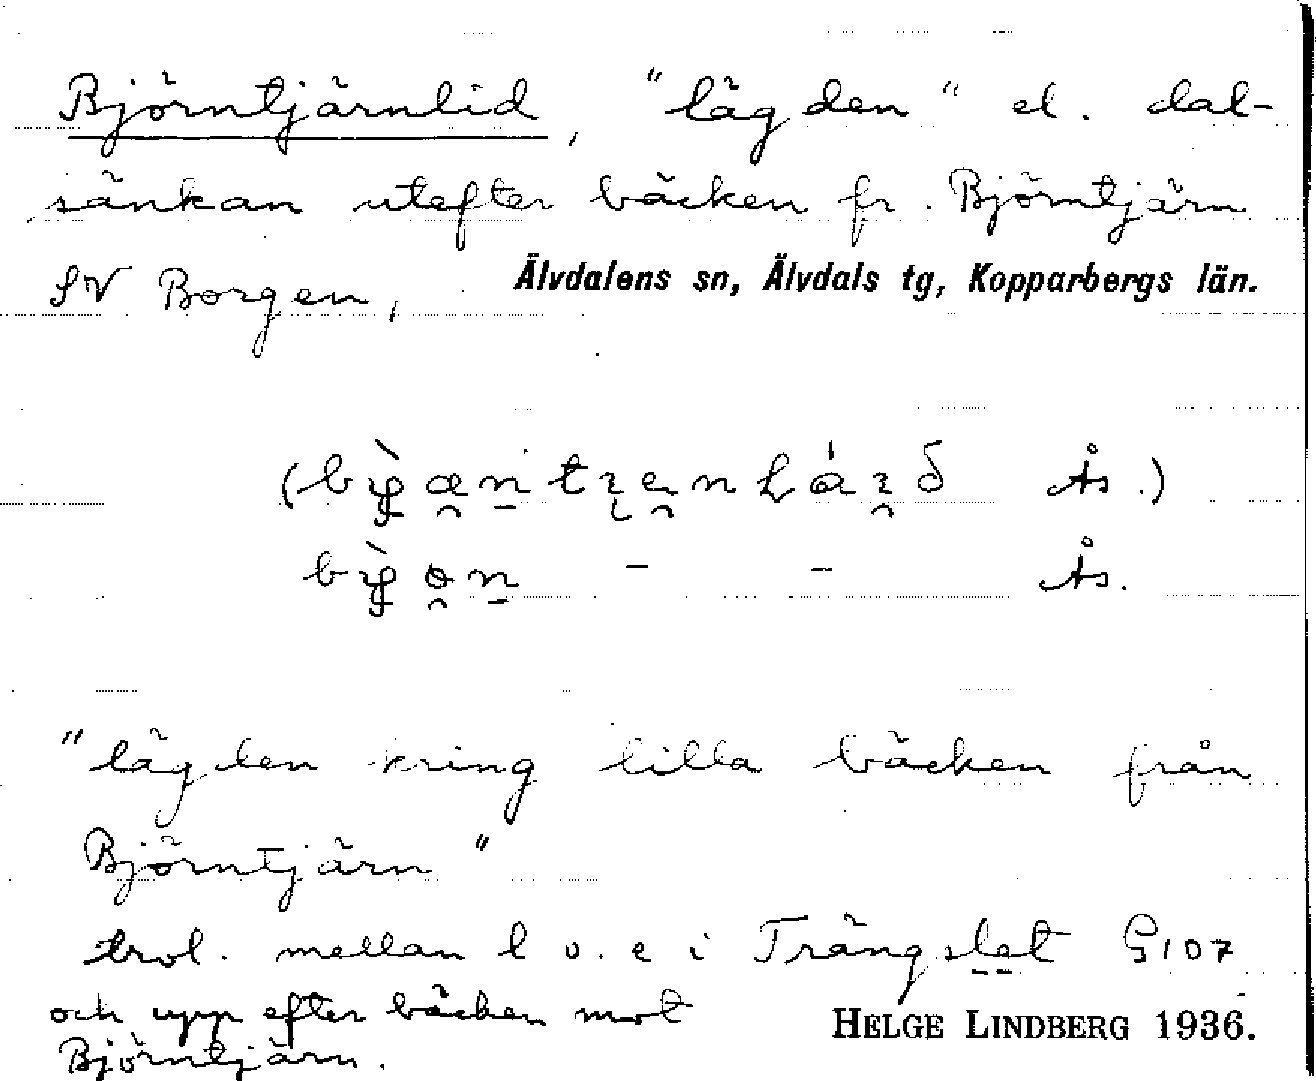 Björntjärnlid, "lägden" el. dal-
sänkan utefter bäcken fr. Björntjärn
SV Borgen,
Älvdalens sn, Älvdals tg, Kopparbergs län.
Ås.)
Ås.
"lägden kring lilla bäcken från
Björntjärn"
trol. mellan l o. e i Trängslet G107
och upp efter bäcken mot
Björntjärn.
HELGE LINDBERG 1936.